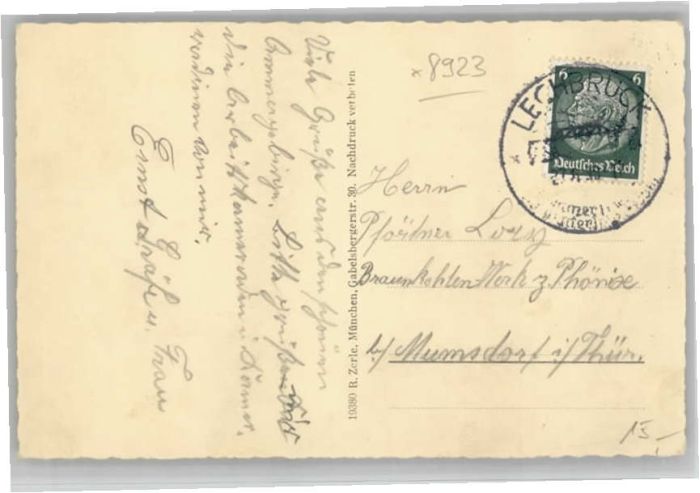 Viele Grüße aus dem schönen
Ammergebirge. Bitte grüßen Sie
die Arbeitskameraden u.
von mir.
Ernst u. Frau
19380 R. Zerle, München, Gabelsbergerstr. 30. Nachdruck verboten
8923
6 6
Deutsches Reich
LECHBRUCK
Herrn
Pförtner Lory
Braunkohlen Werk z. Phönix
b/ Mumsdorf i/Thür.
15.-